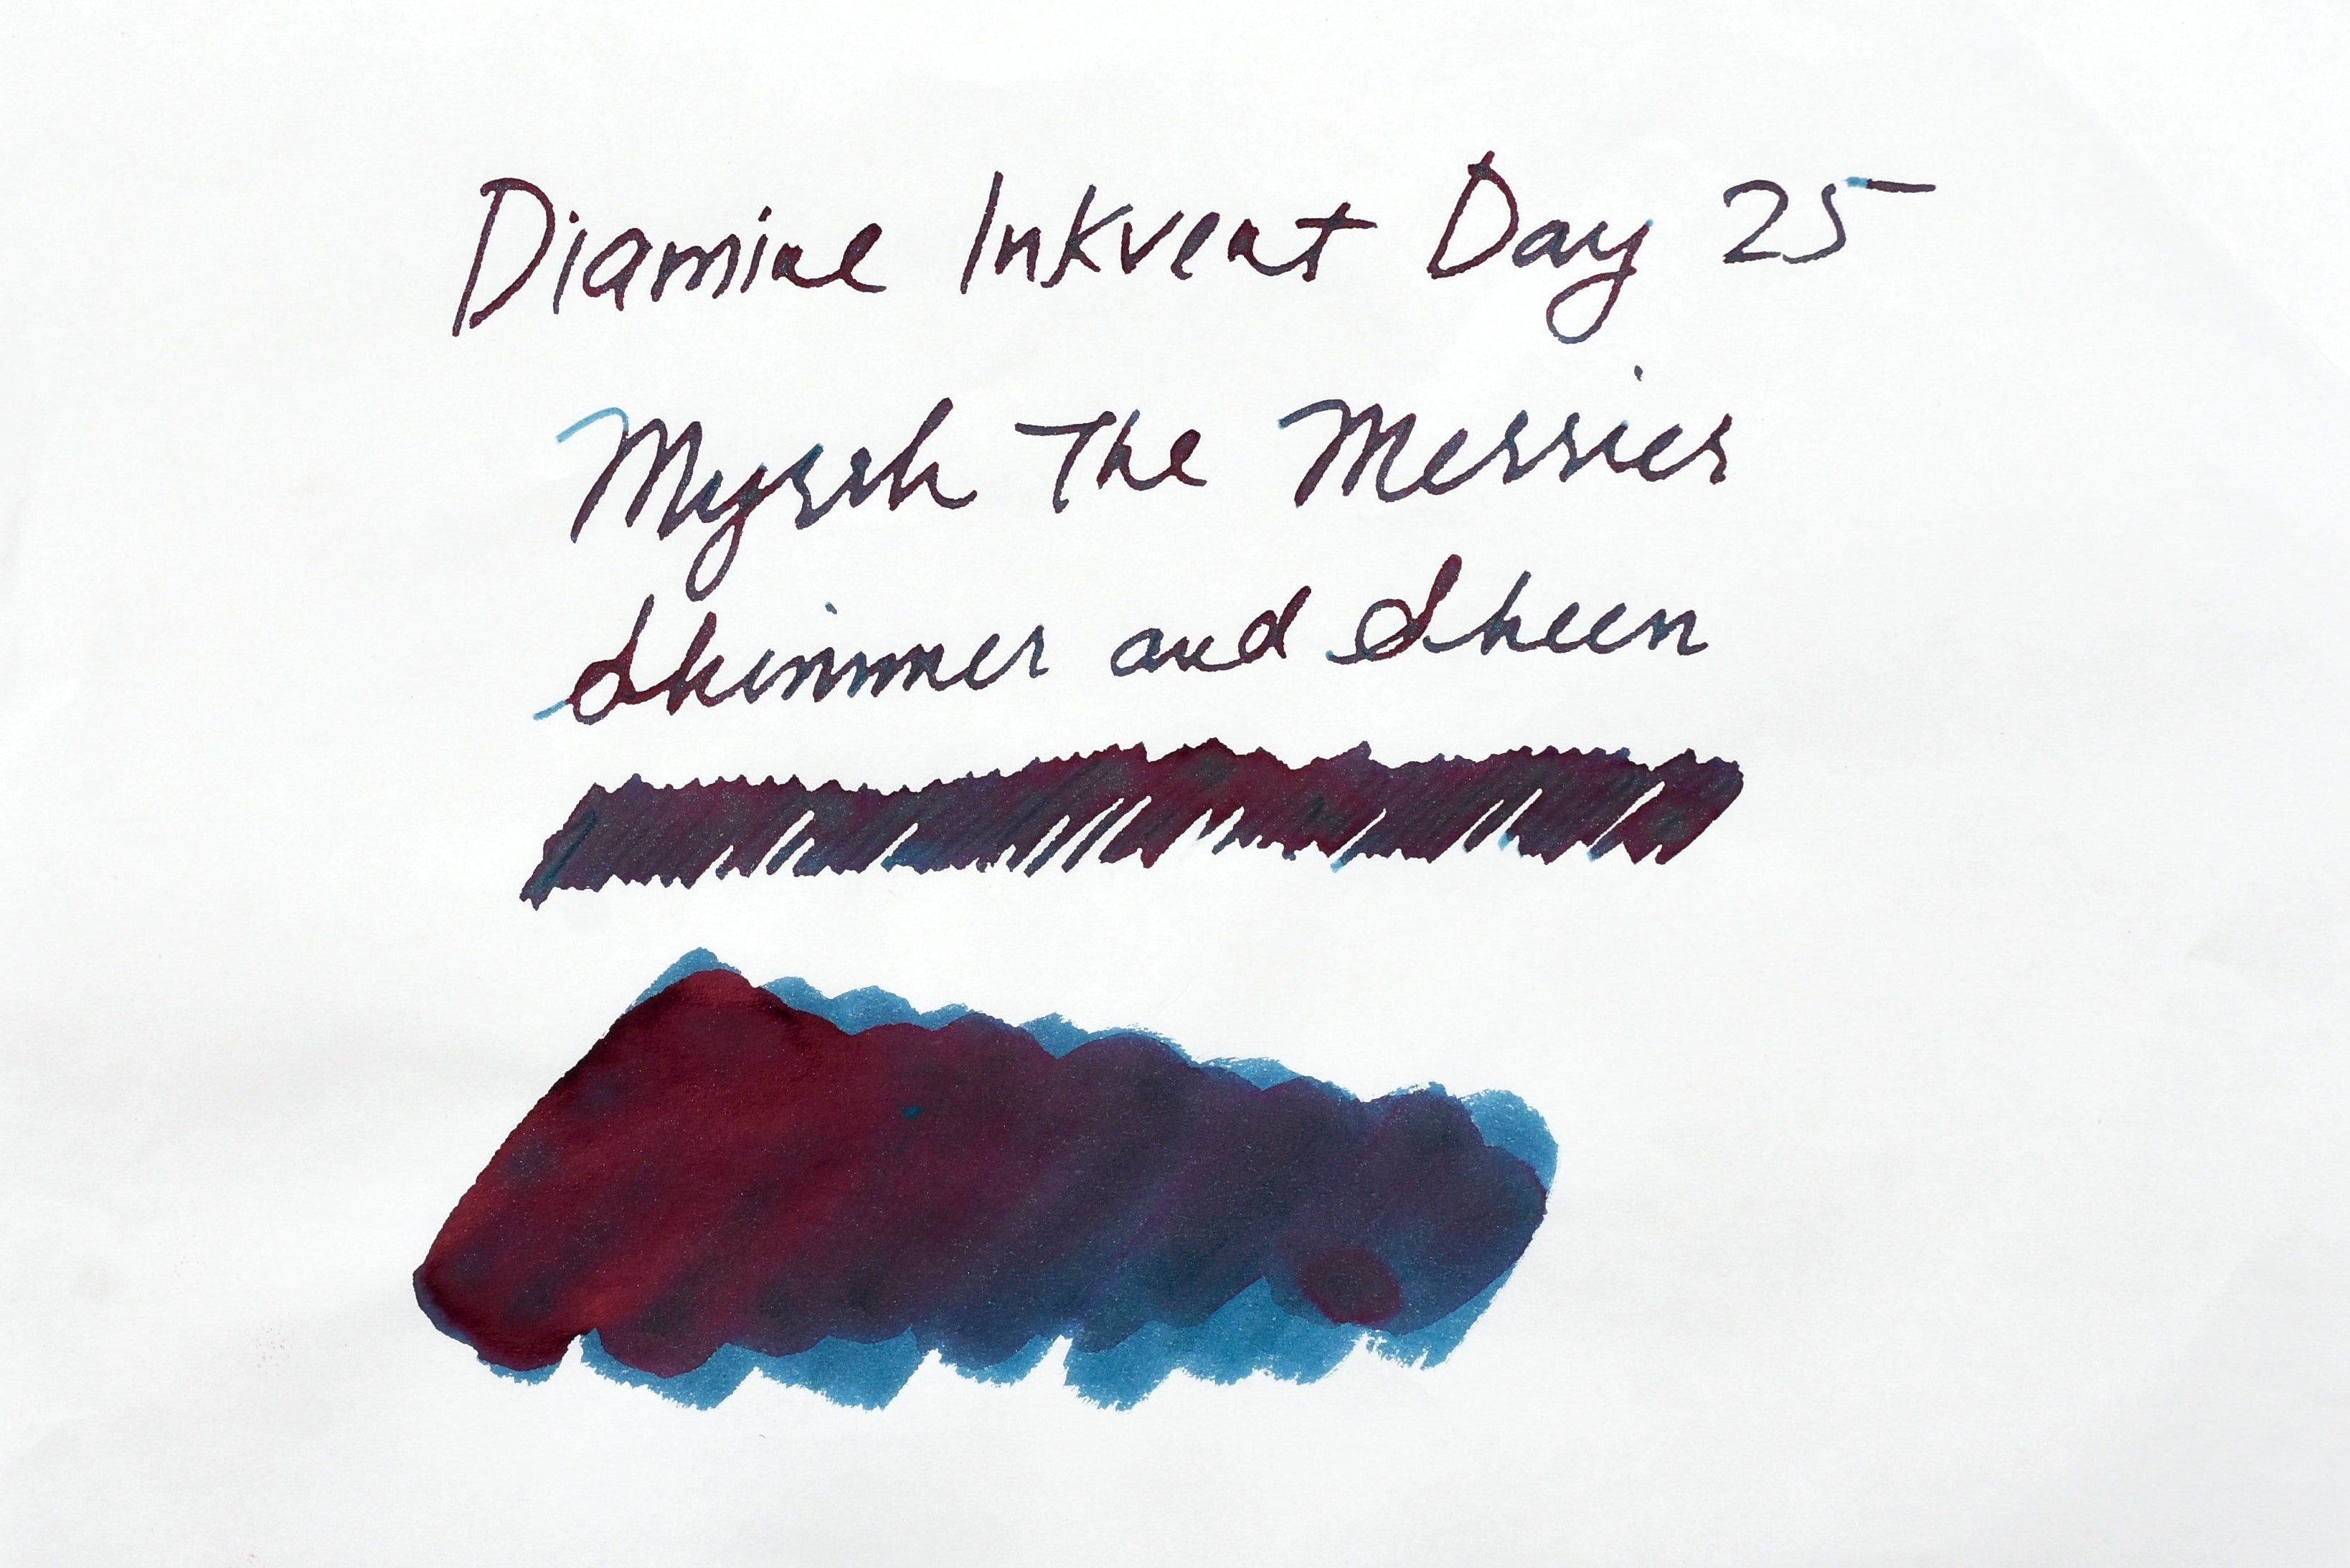 Diamine Inkvent Day 25
Myrrh The Merrier
Shimmer and Sheen